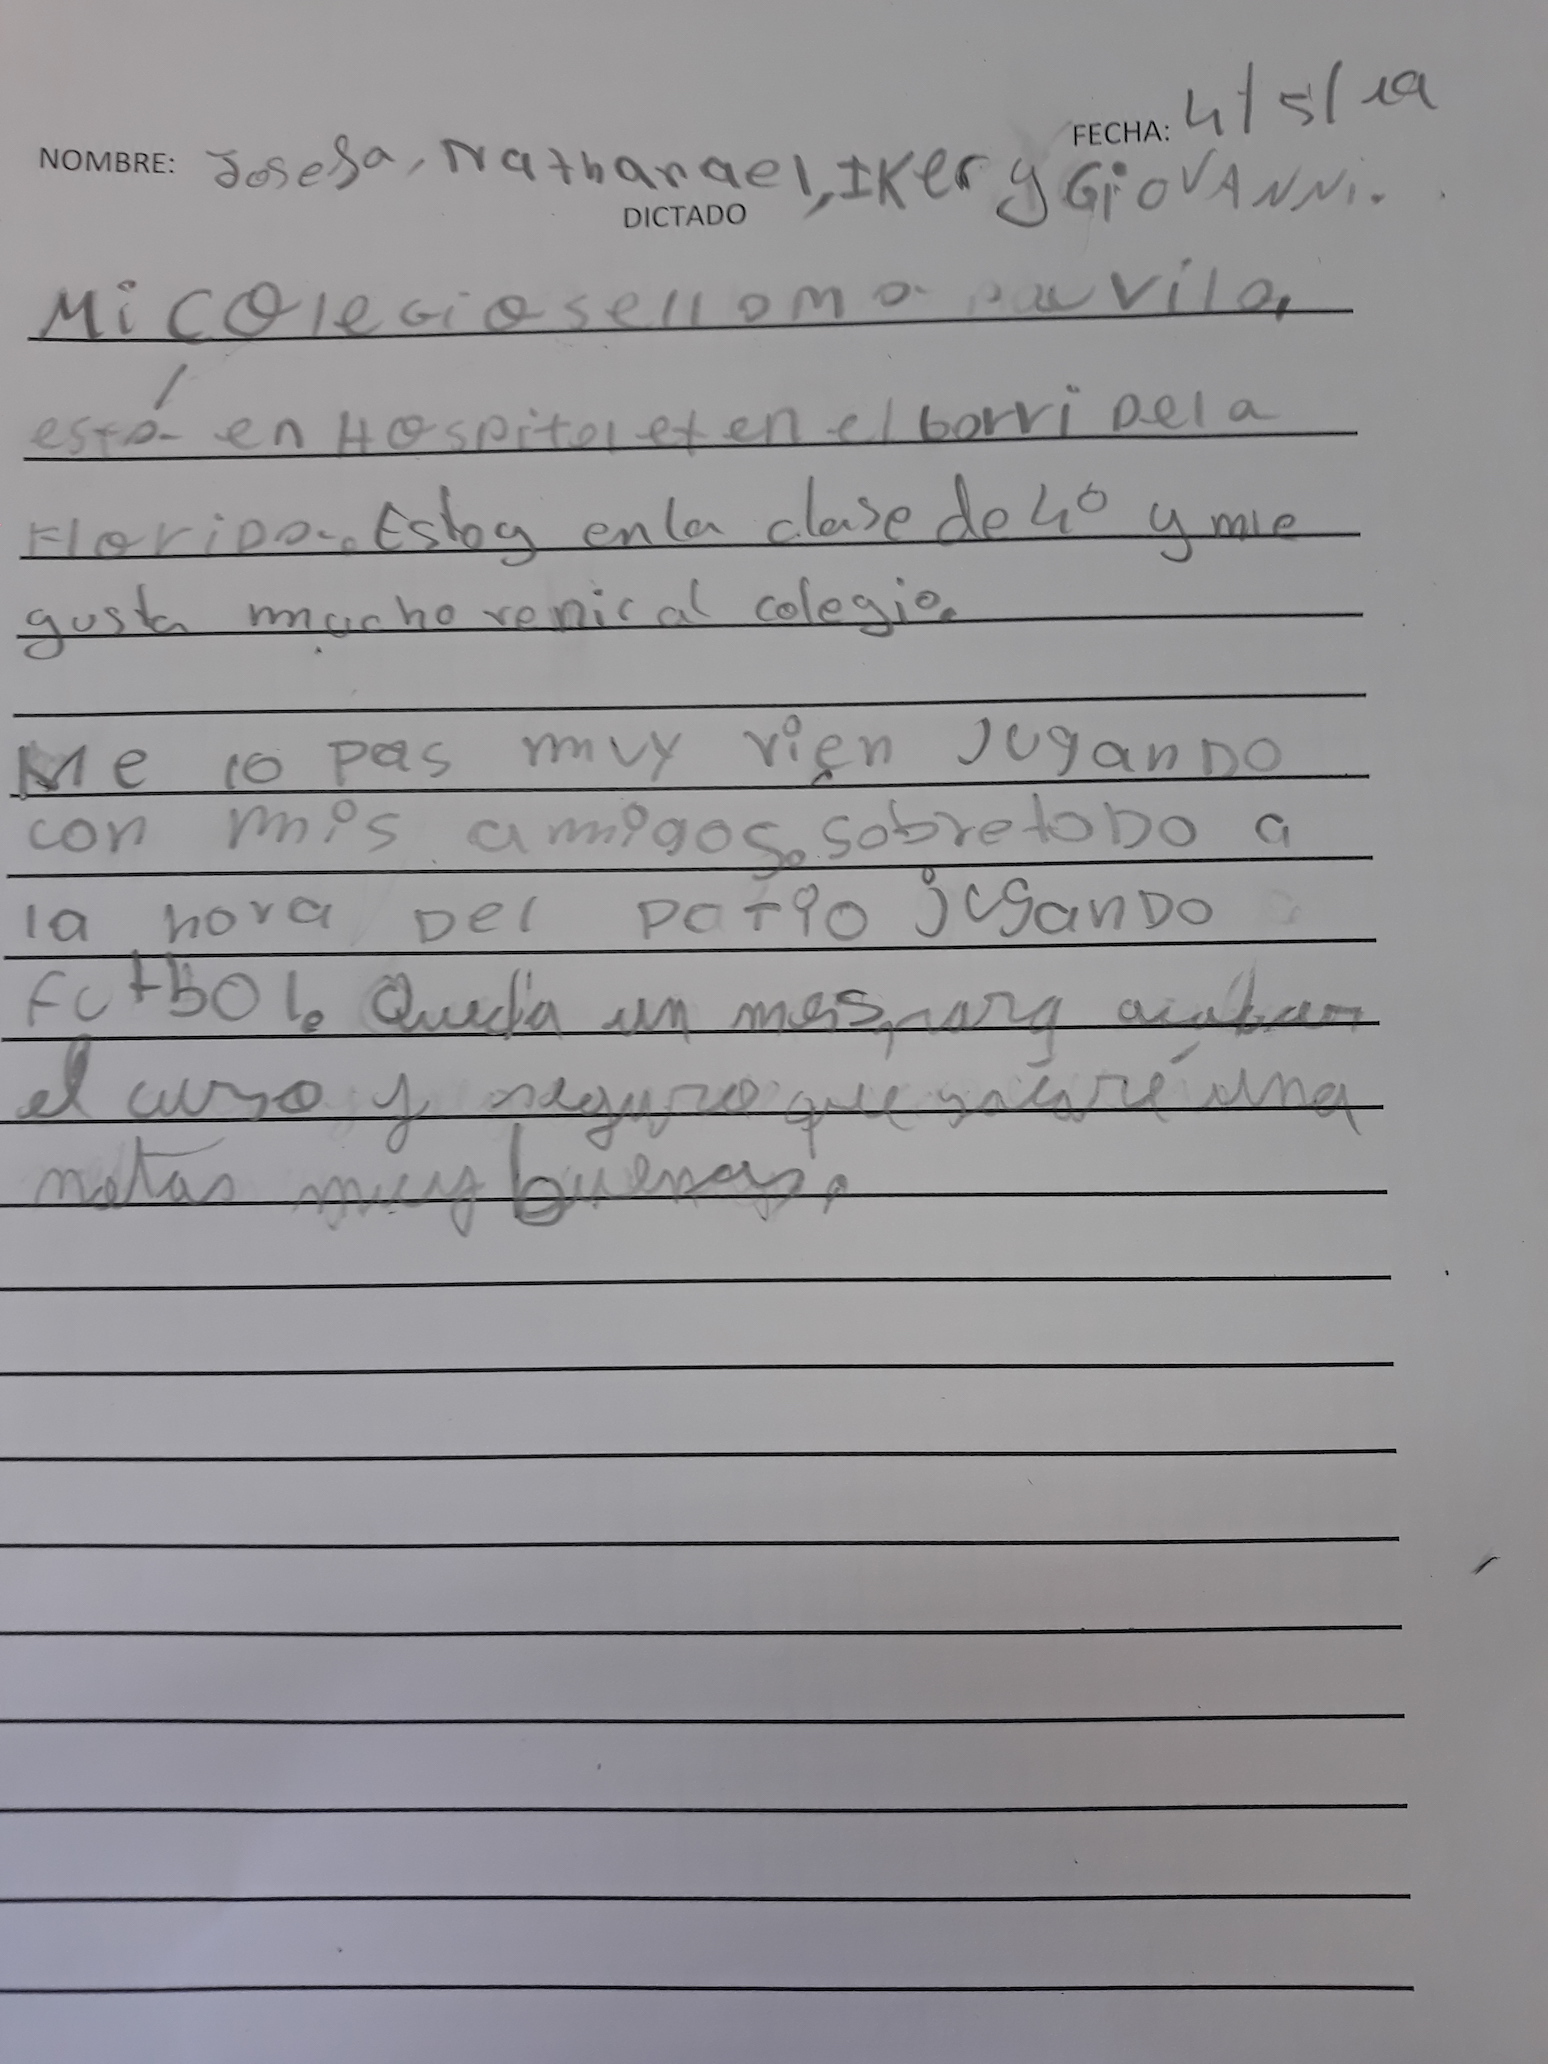 FECHA: 4/5/19
NOMBRE: Josefa, Nathanael, IKer y GiOVANNi.
DICTADO
Mi COlegio se llama pau vila,
está en Hospitalet en el barri Dela
FloriDa. Estoy en la clase de 4º y me
gusta mucho venir al colegio.
Me lo pas muy vien JuganDo
con mis amigos, sobretoDo a
la hora Del patio juganDo
FutbOl. Queda un mes, para acabar
el curso y seguro que sacaré una
notas muy buenas.